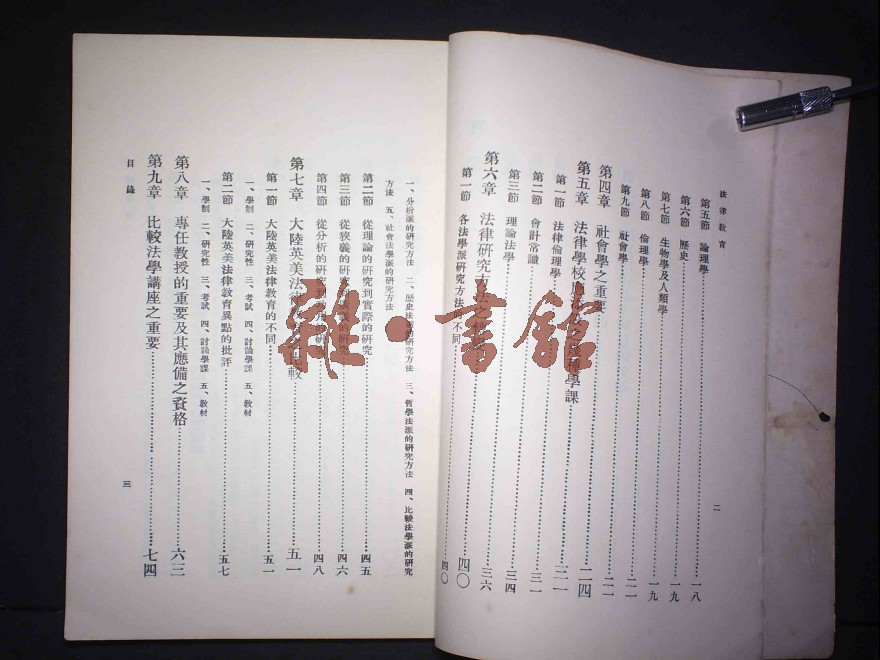 法律教育
第五節 論理學 一八
第六節 歷史 一九
第七節 生物學及人類學 一九
第八節 倫理學 二一
第九節 社會學 二一
第四章 社會學之重要 二四
第五章 法律學校應 學課 三一
第一節 法律倫理學 三一
第二節 會計常識 三一
第三節 理論法學 三四
第六章 法律研究方法之 三六
第一節 各法學派研究方法的不同 四〇
二
一、分析派的研究方法 二、歷史法派的研究方法 三、哲學法派的研究方法 四、比較法學派的研究
方法 五、社會法學派的研究方法
第二節 從理論的研究到實際的研究 四五
第三節 從狹義的研究到 的研究 四六
第四節 從分析的研究到 的研 四八
第七章 大陸英美法律 比較 五一
第一節 大陸英美法律教育的不同 五一
一、學制 二、研究性 三、考試 四、討論學課 五、教材
第二節 大陸英美法律教育異點的批評 五七
一、學制 二、研究性 三、考試 四、討論學課 五、教材
第八章 專任教授的重要及其應備之資格 六三
第九章 比較法學講座之重要 七四
目錄
三
雜·書館